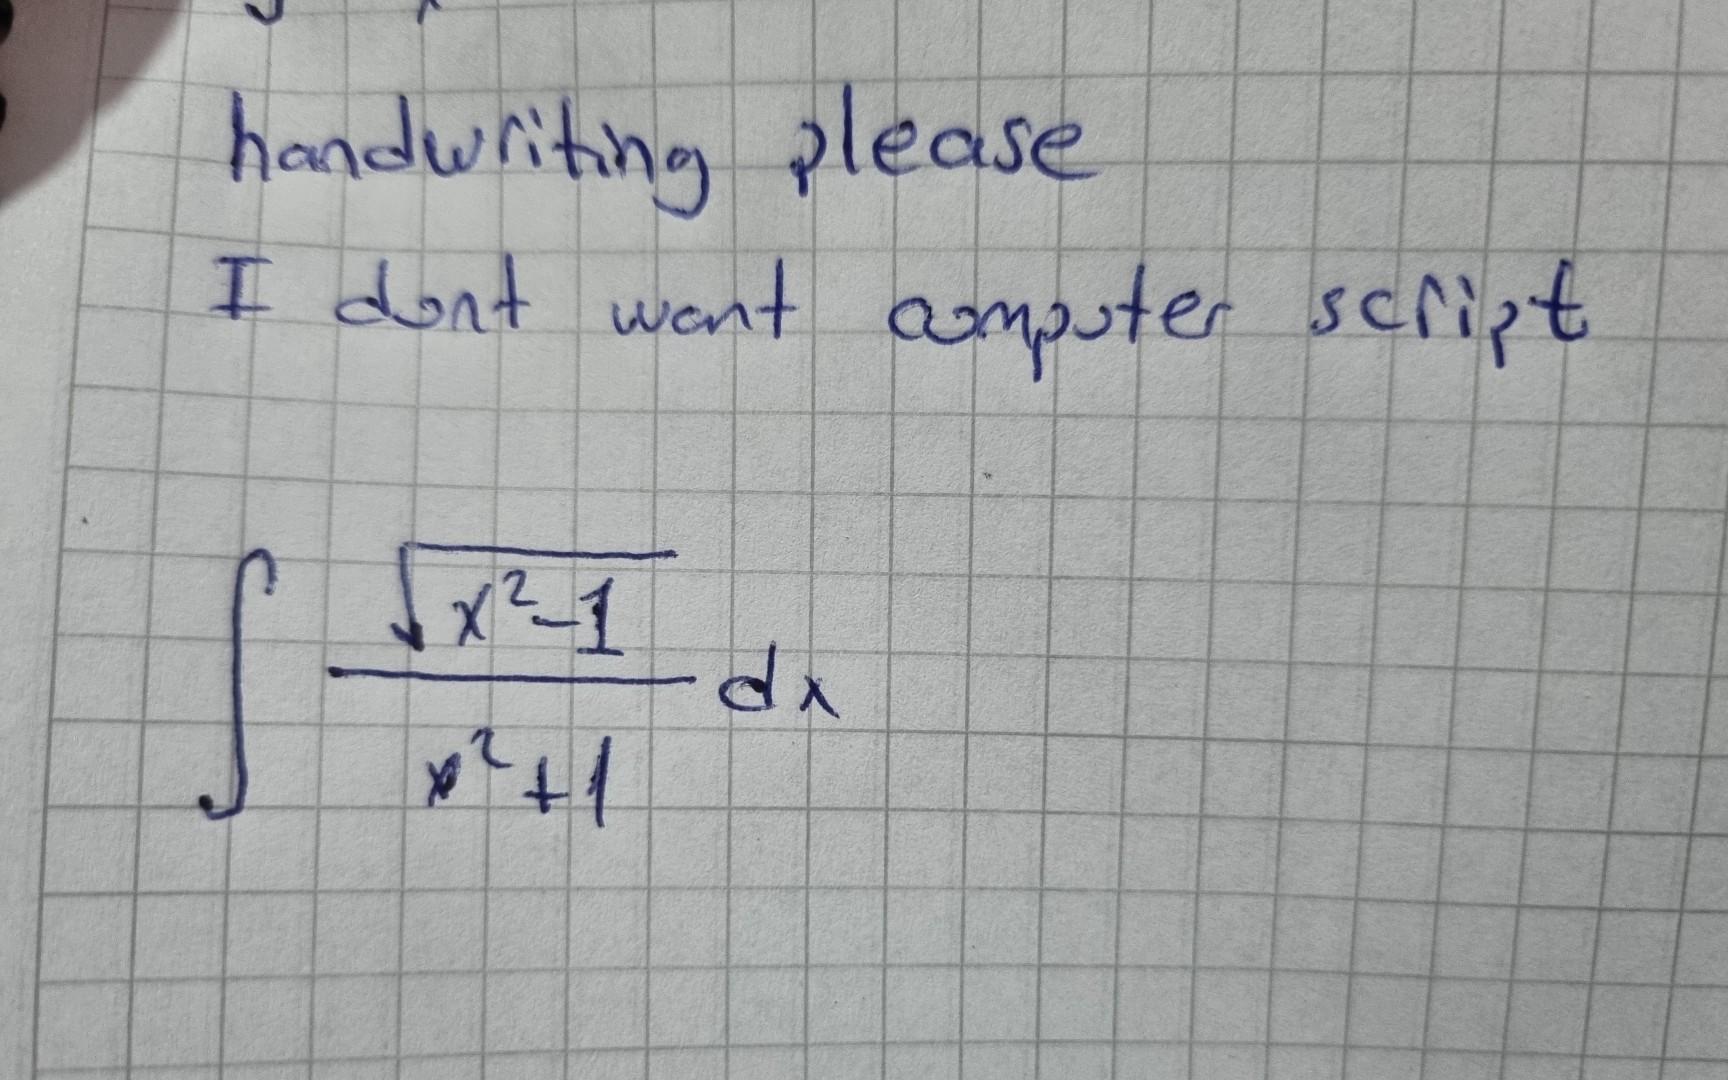 handwriting please
I dont want computer script
∫ √(x²-1) / (x²+1) dx